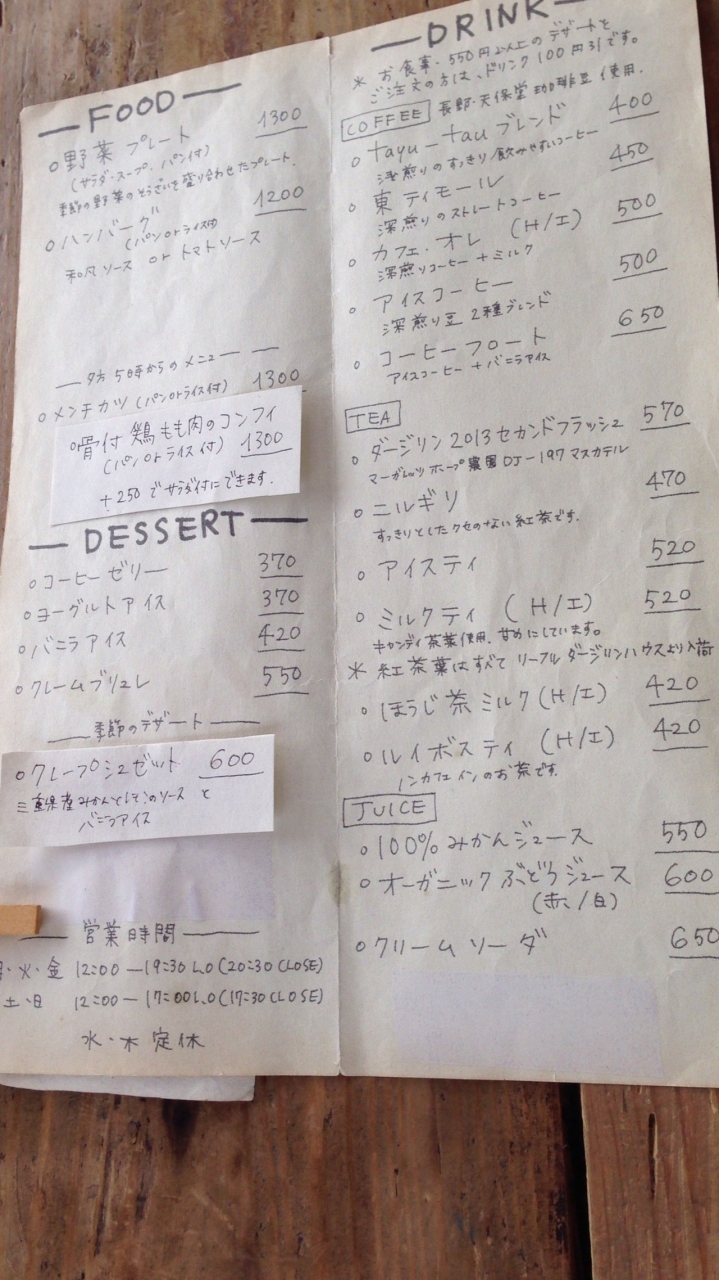 FOOD
○野菜プレート 1300
(サラダ・スープ、パン付)
季節の野菜のおそうざいを盛り合わせたプレート。
○ハンバーグ 1200
(パンorライス付)
和風ソース or トマトソース
夕方5時からのメニュー
○メンチカツ (パンorライス付) 1300
○骨付鶏もも肉のコンフィ
(パンorライス付) 1300
+250でサラダ付にできます。
DESSERT
○コーヒーゼリー 370
○ヨーグルトアイス 370
○バニラアイス 420
○クレームブリュレ 550
季節のデザート
○クレープシュゼット 600
三重県産みかんとしょうがのソースと
バニラアイス
営業時間
月・火・金 12:00―19:30 L.O (20:30 CLOSE)
土・日 12:00―17:00 L.O (17:30 CLOSE)
水・木 定休
DRINK
※お食事・550円以上のデザートを
ご注文の方は、ドリンク100円引です。
COFFEE 長野・天保堂 珈琲豆 使用.
○tayu-tau ブレンド 400
浅煎りのすっきり飲みやすいコーヒー
○東ティモール 450
深煎りのストレートコーヒー
○カフェ・オレ (H/I) 500
深煎りコーヒー+ミルク
○アイスコーヒー 500
深煎り豆 2種ブレンド
○コーヒーフロート 650
アイスコーヒー+バニラアイス
TEA
○ダージリン2013セカンドフラッシュ 570
マーガレッツホープ農園 DJ-197 マスカテル
○ニルギリ 470
すっきりとしたクセのない紅茶です.
○アイスティ 520
○ミルクティ (H/I) 520
キャンディ茶葉使用、甘めにしています。
※紅茶葉はすべてリーフルダージリンハウスより入荷
○ほうじ茶ミルク (H/I) 420
○ルイボスティ (H/I) 420
ノンカフェインのお茶です.
JUICE
○100%みかんジュース 550
○オーガニックぶどうジュース 600
(赤/白)
○クリームソーダ 650